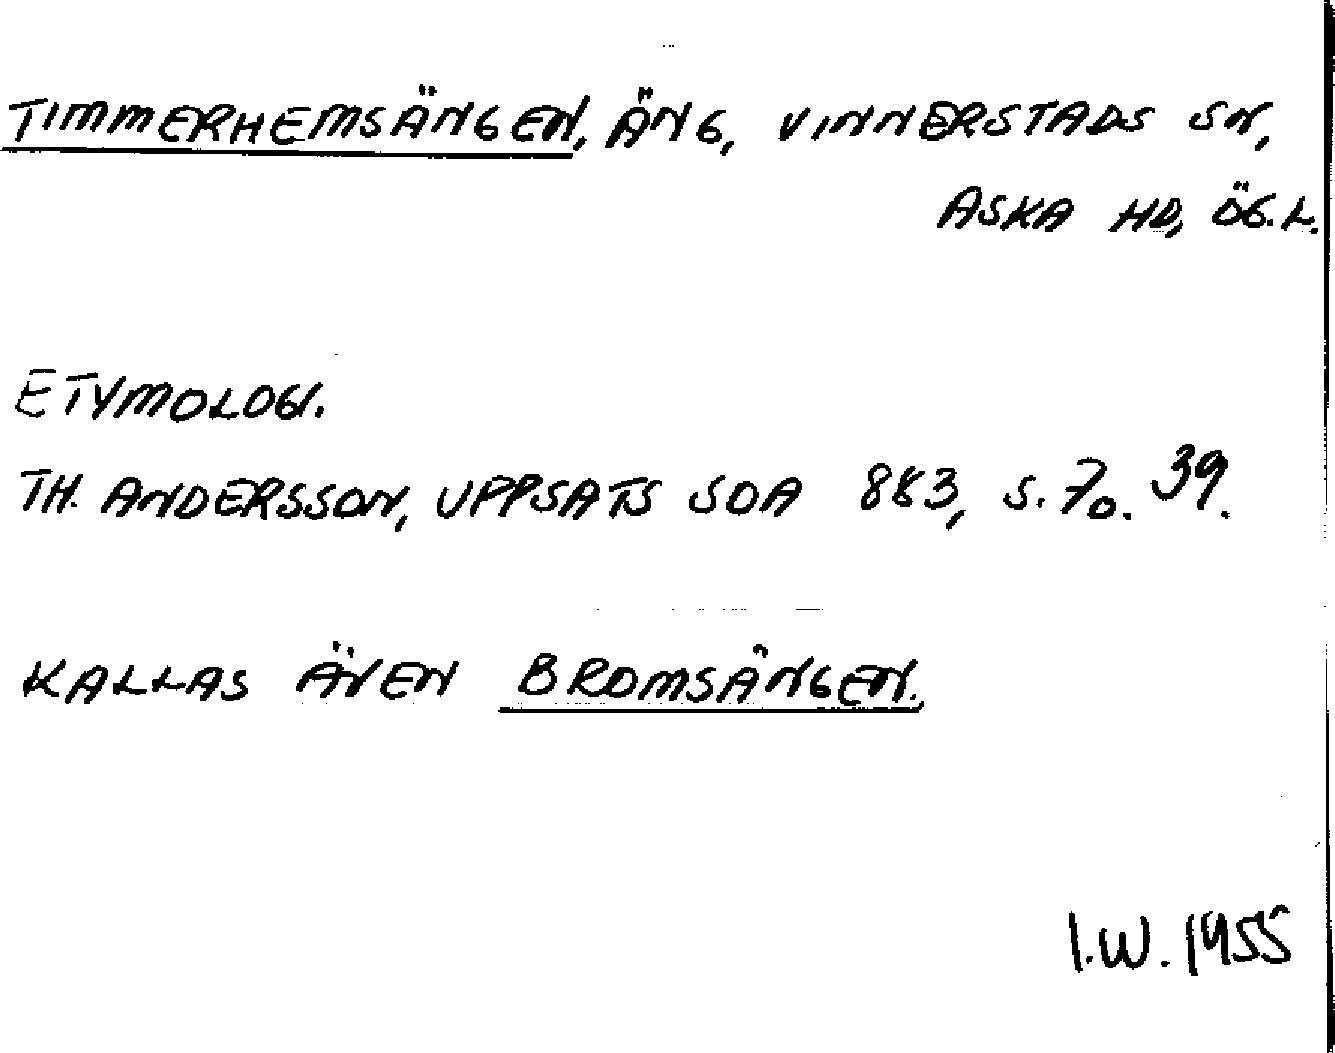 TIMMERHEMSÄNGEN, ÄNG, VINNERSTADS SN,
ASKA HD, ÖG.L.
ETYMOLOGI.
TH. ANDERSSON, UPPSATS SOA 883, S. 70. 39.
KALLAS ÄVEN BROMSÄNGEN.
I.W. 1955